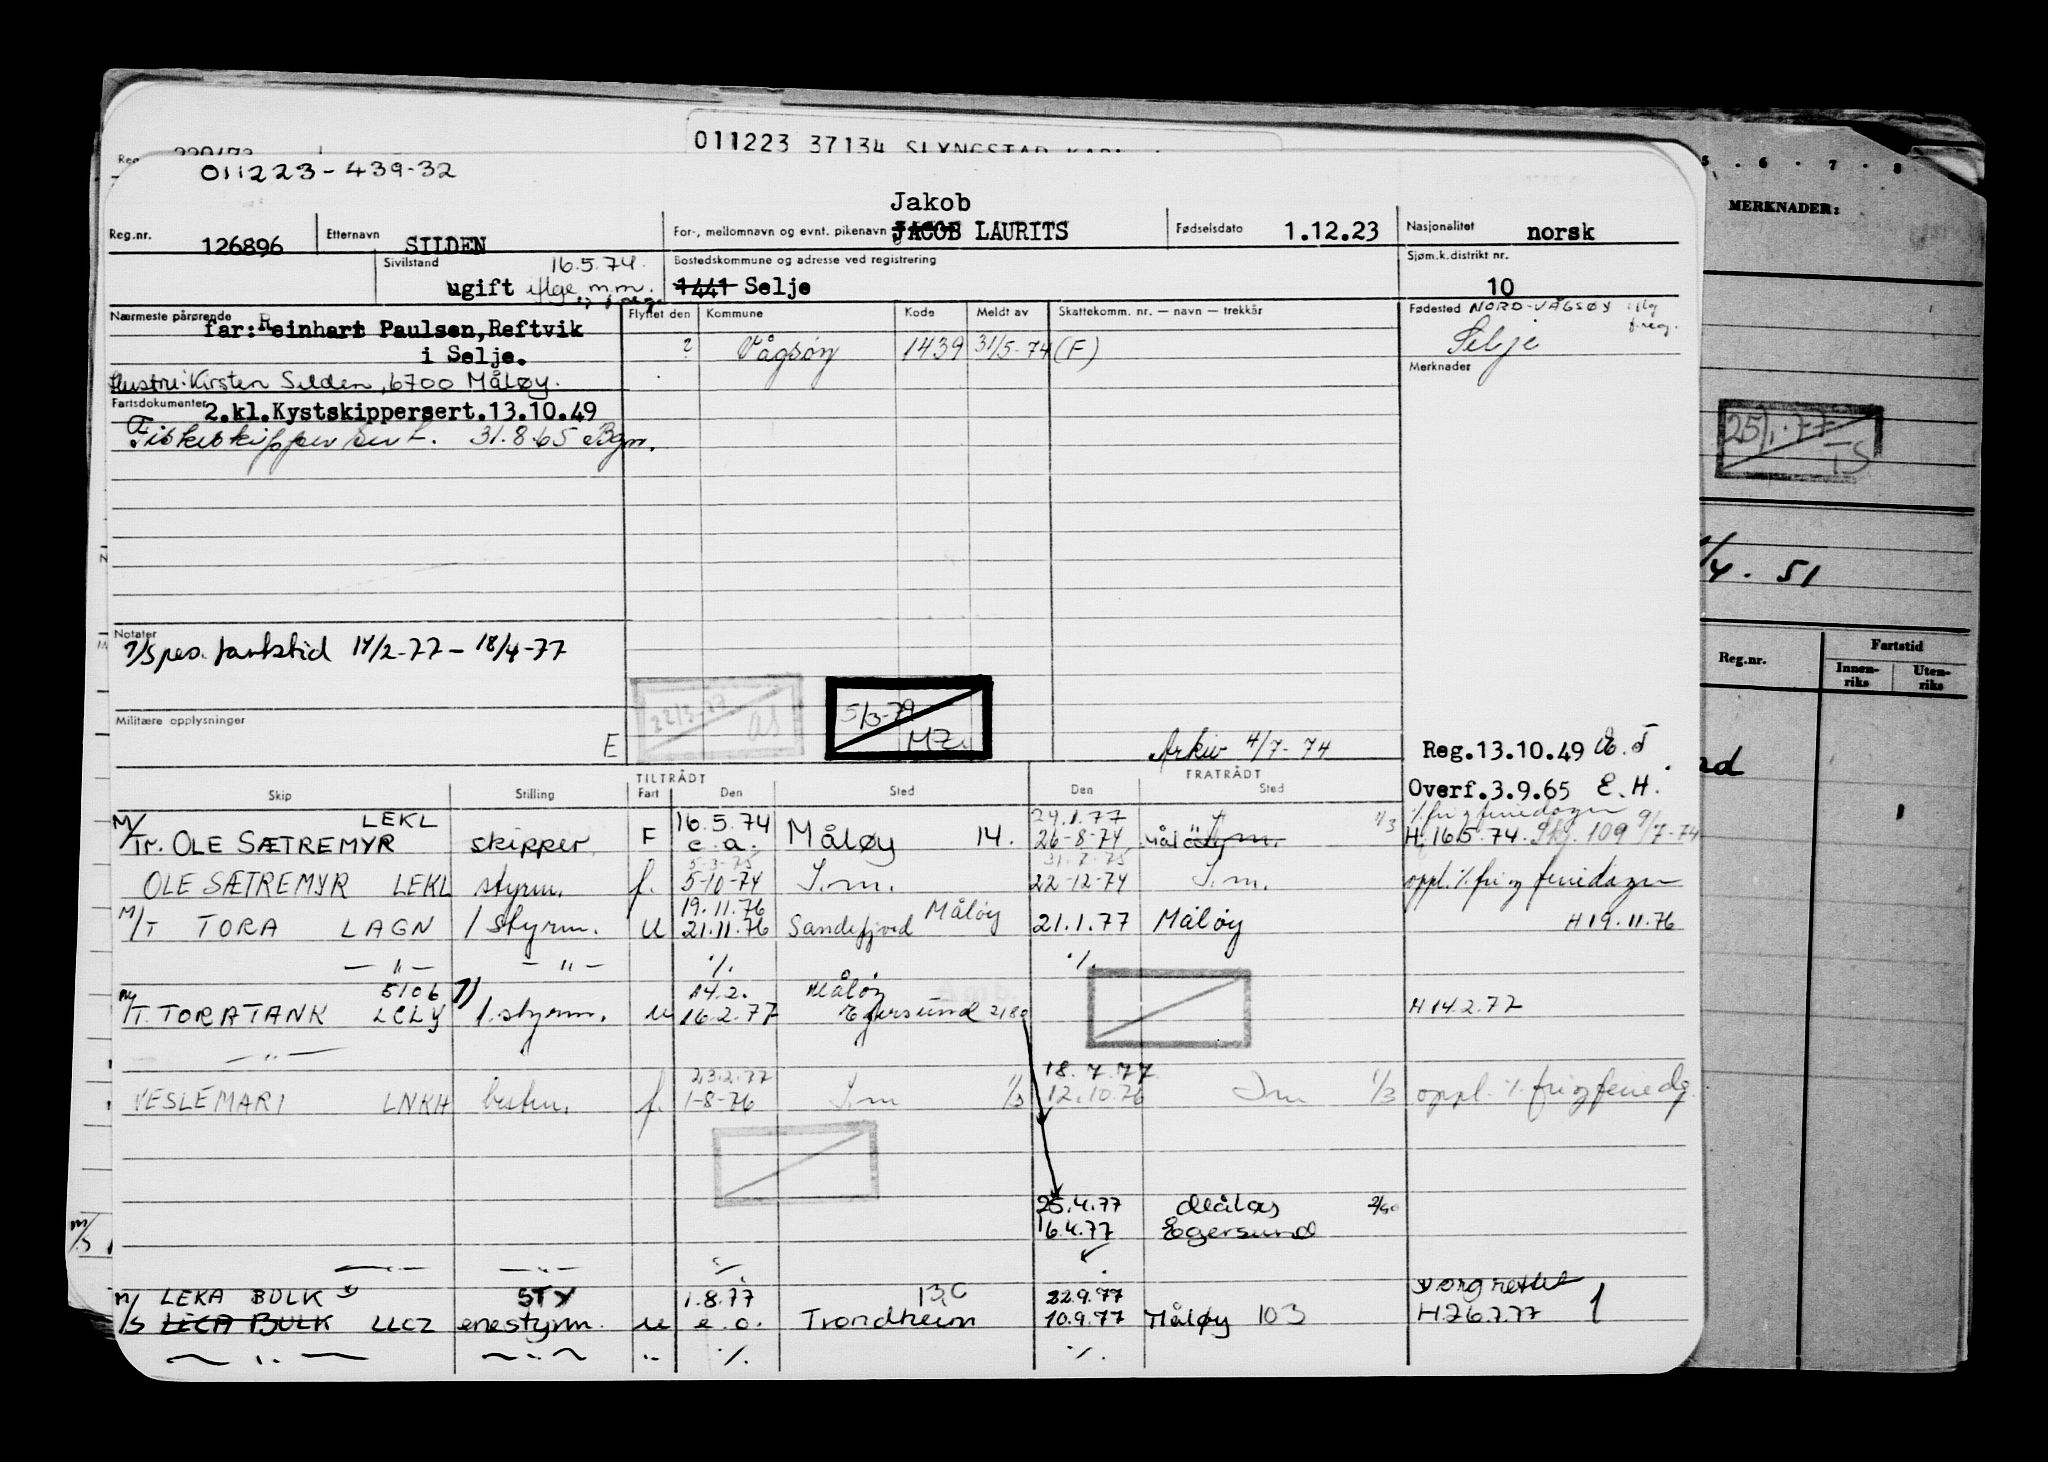 011223 37134 SLYNGSTAD
011223-439-32
5 · 6 · 7 · 8
MERKNADER:
Jakob
Reg.nr. 126896 Etternavn SILDEN For-, mellomnavn og evnt. pikenavn JACOB LAURITS Fødselsdato 1.12.23 Nasjonalitet norsk
Sivilstand ugift 16.5.74. iflge m.m. Bostedskommune og adresse ved registrering 1441 Selje Sjøm.k.distrikt nr. 10
Nærmeste pårørende Flyttet den Kommune Kode Meldt av Skattekomm. nr. — navn — trekkår Fødested NORD-VÅGSØY
far: Reinhart Paulsen, Reftvik
i Selje.
? Vågsøy 1439 31/5-74 (F) Selje
Hustru: Kirsten Silden, 6700 Måløy. Merknader
Fartsdokumenter 2.kl.Kystskippersert.13.10.49
Fiskeskippersert. 31.8.65 Bgn.
25/1-77 TS
1/4. 51
Notater
1/Spes. fartstid 14/2-77 – 18/4-77
Reg.nr. Fartstid
Innenriks Utenriks
Militære opplysninger E
22/3-77 as
5/3-79 MZ.
Arkiv 4/7-74 Reg.13.10.49
Overf.3.9.65 E.H.
TILTRÅDT FRATRÅDT
Skip Stilling Fart Den Sted Den Sted
LEKL 16.5.74 29.1.77 1/3 % fri og feriedager
M/Tr. OLE SÆTREMYR skipper F e.a. Måløy 14. 26-8-74 H.16.5.74. 109 9/7-74
5-3-75 31.7.75
OLE SÆTREMYR LEKL styrm. f. 5-10-74 I.m. 22-12-74 I.m. oppl. % fri og feriedager
19.11.76 Måløy
M/T TORA LAGN 1 styrm. U 21.11.76 Sandefjord 21.1.77 Måløy H 19.11.76
— " — — " — %. %.
5106 1) 14.2. Måløy
M/T. TORATANK LCLY 1. styrm. u 16.2.77 Egersund 2180 H 14.2.77
— " — 18.4.77
23.2.77
VESLEMARI LNKH bestm. f. 1-8-76 I.m 1/3 12.10.76 I m 1/3 oppl. % fri og feriedg.
25.4.77 Måløy 2/80
16.4.77 Egersund
— — — " — %
LEKA BULK x) STY 1.8.77 13,0 22.9.77 x) org rettet
M/S LECA BULK LLCZ enestyrm. u e.o. Trondheim 10.9.77 Måløy 103 H.26.7.77 1
— " — — " — " %. %.